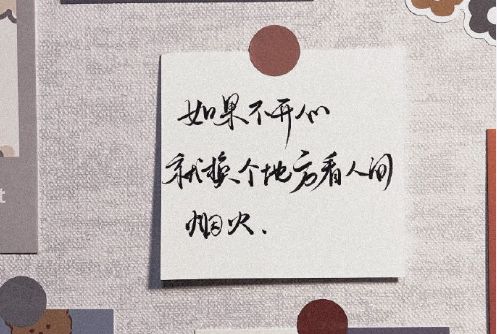 如果不开心
就换个地方看人间
烟火.